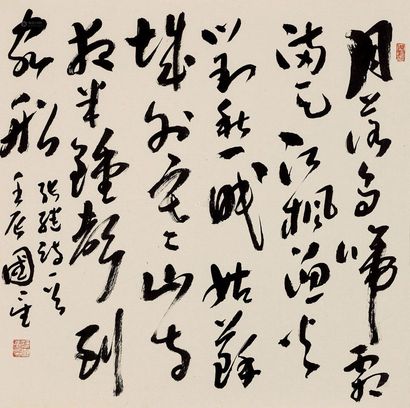 月落烏啼霜
满天江楓漁火
對愁眠姑蘇
城外寒山寺
夜半鐘聲到
客船
张継诗一首
壬辰國